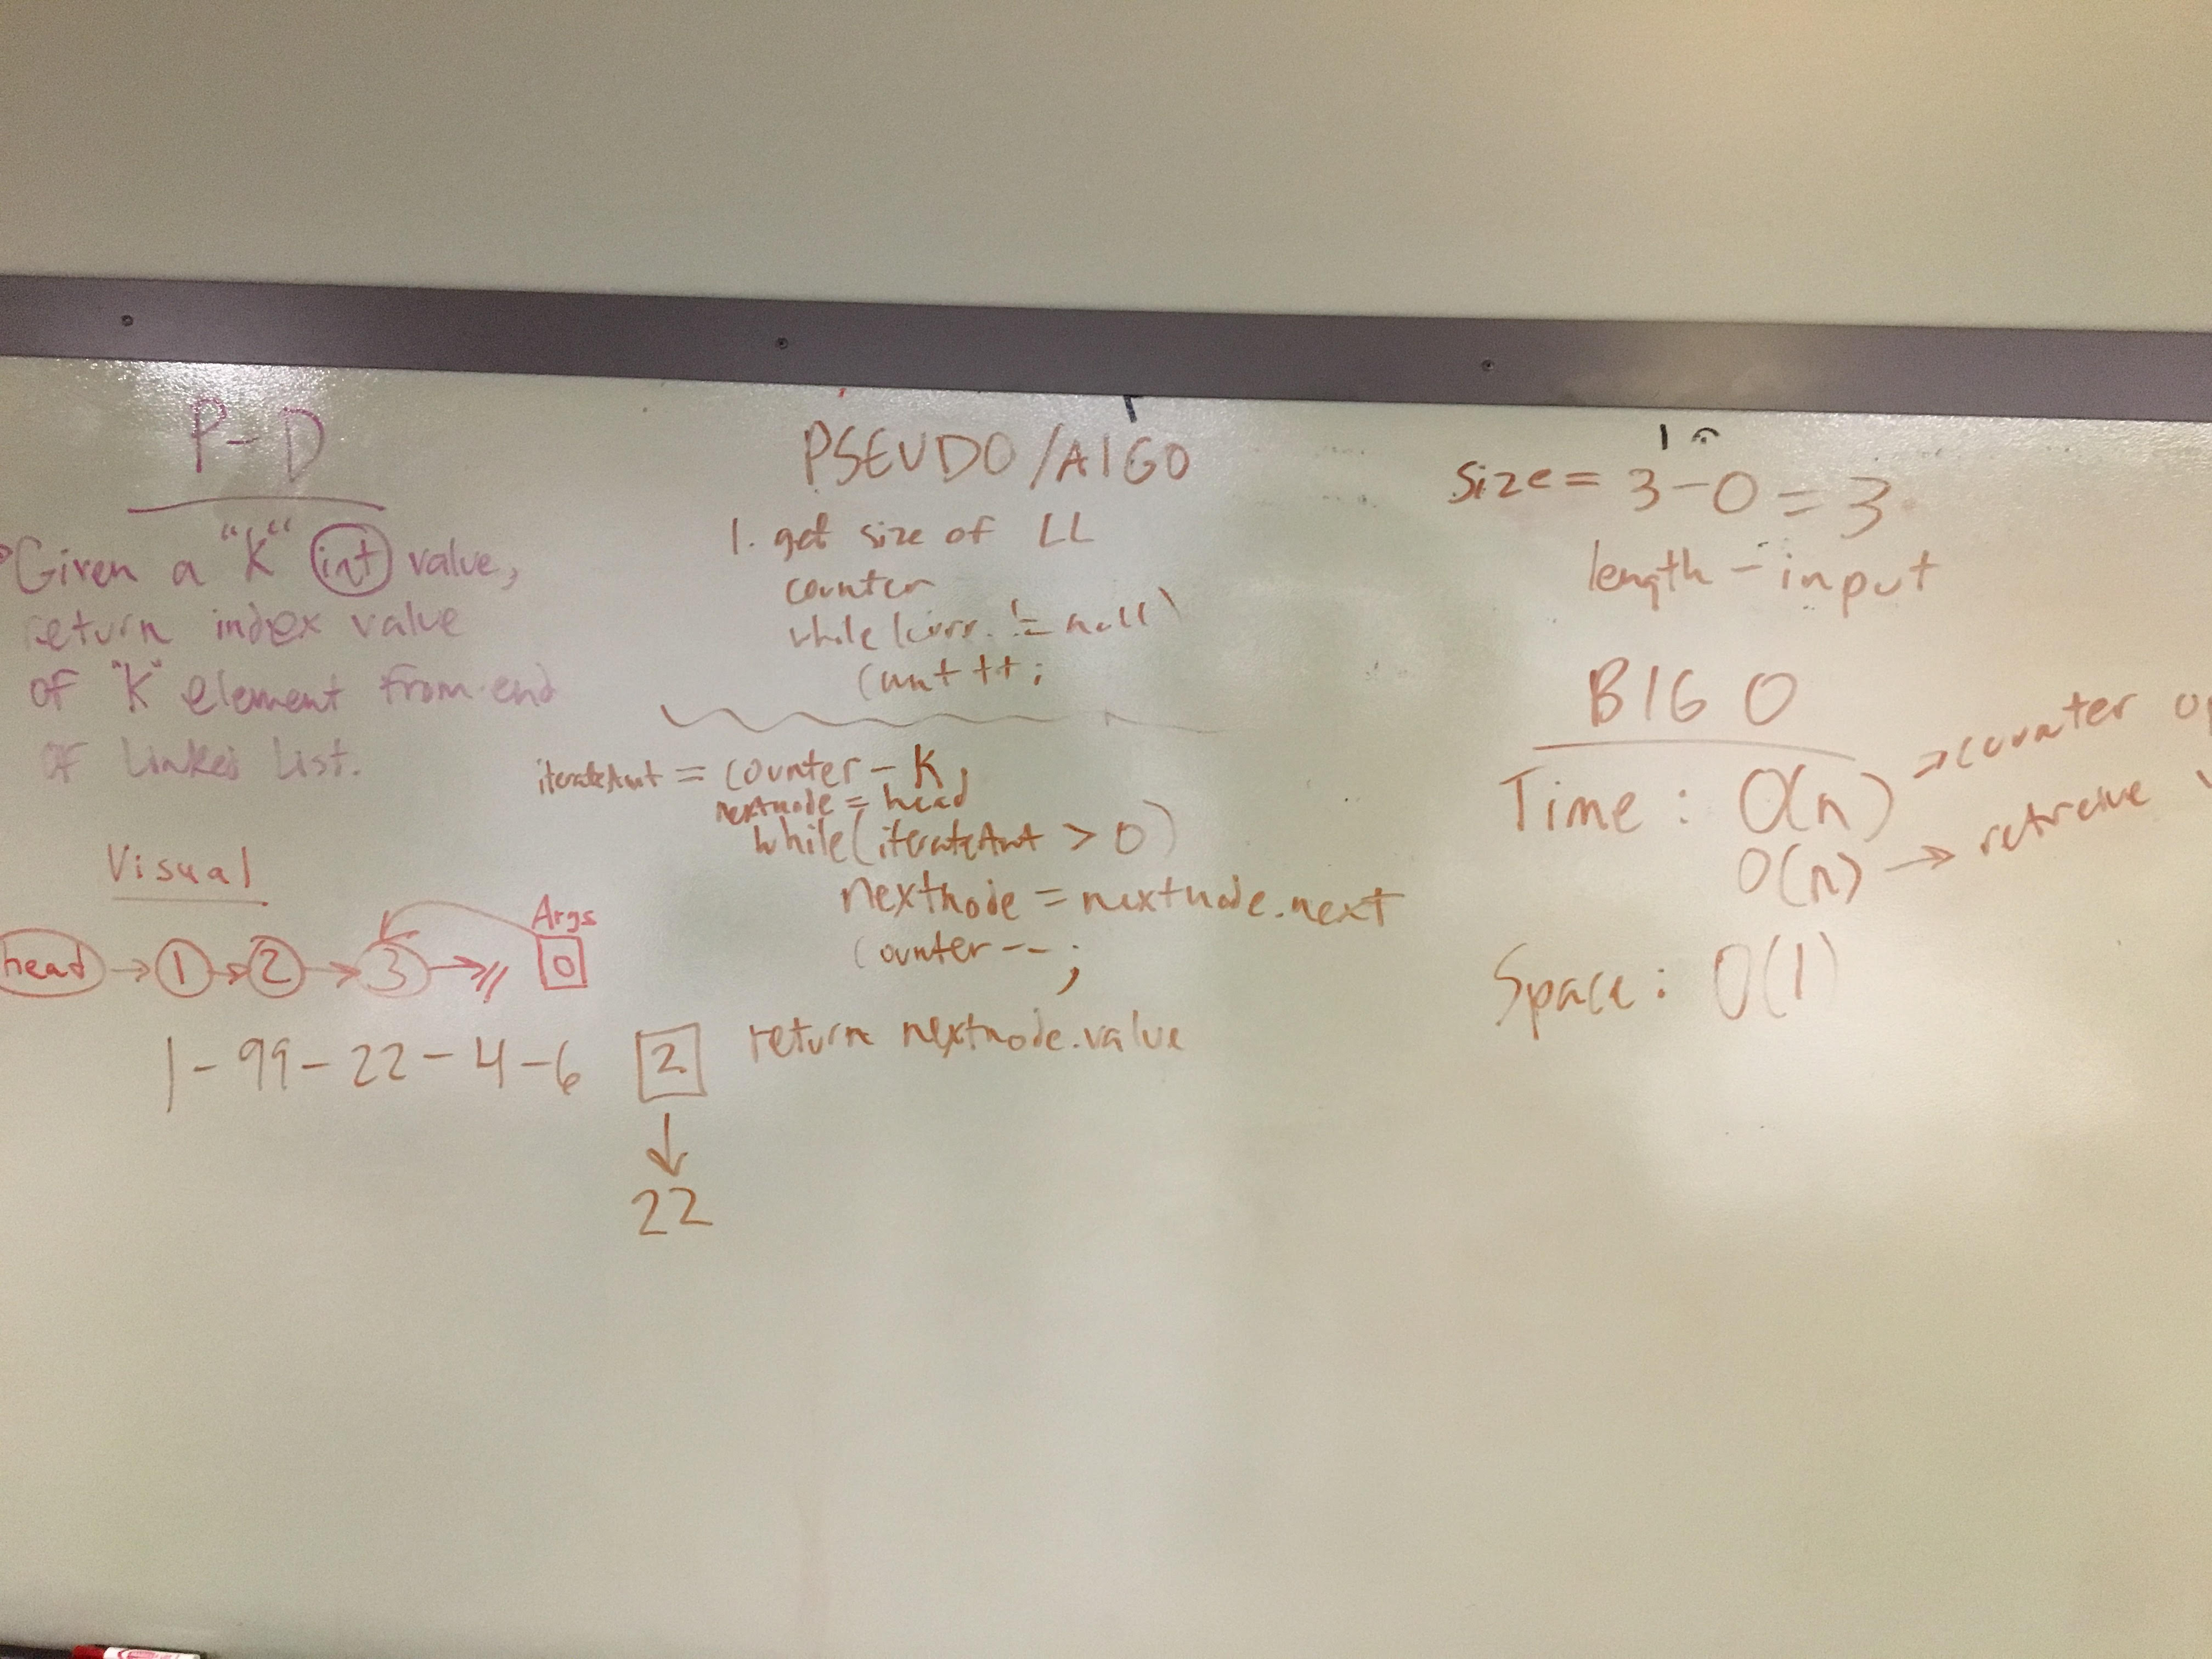 P-D
Given a "K" int value,
return index value
of "K" element from end
of Linked List.
Visual
head → 1 → 2 → 3 →
Args
0
1-99-22-4-6
2
22
PSEUDO/AlGO
1. get size of LL
counter
while (curr. != null)
count ++;
iterateAmt = counter - K;
nextnode = head
while(iterateAmt > 0)
nextnode = nextnode.next
counter --;
return nextnode.value
size = 3-0 = 3
length - input
BIG O
Time: O(n) → counter
O(n) → retreive
Space: O(1)